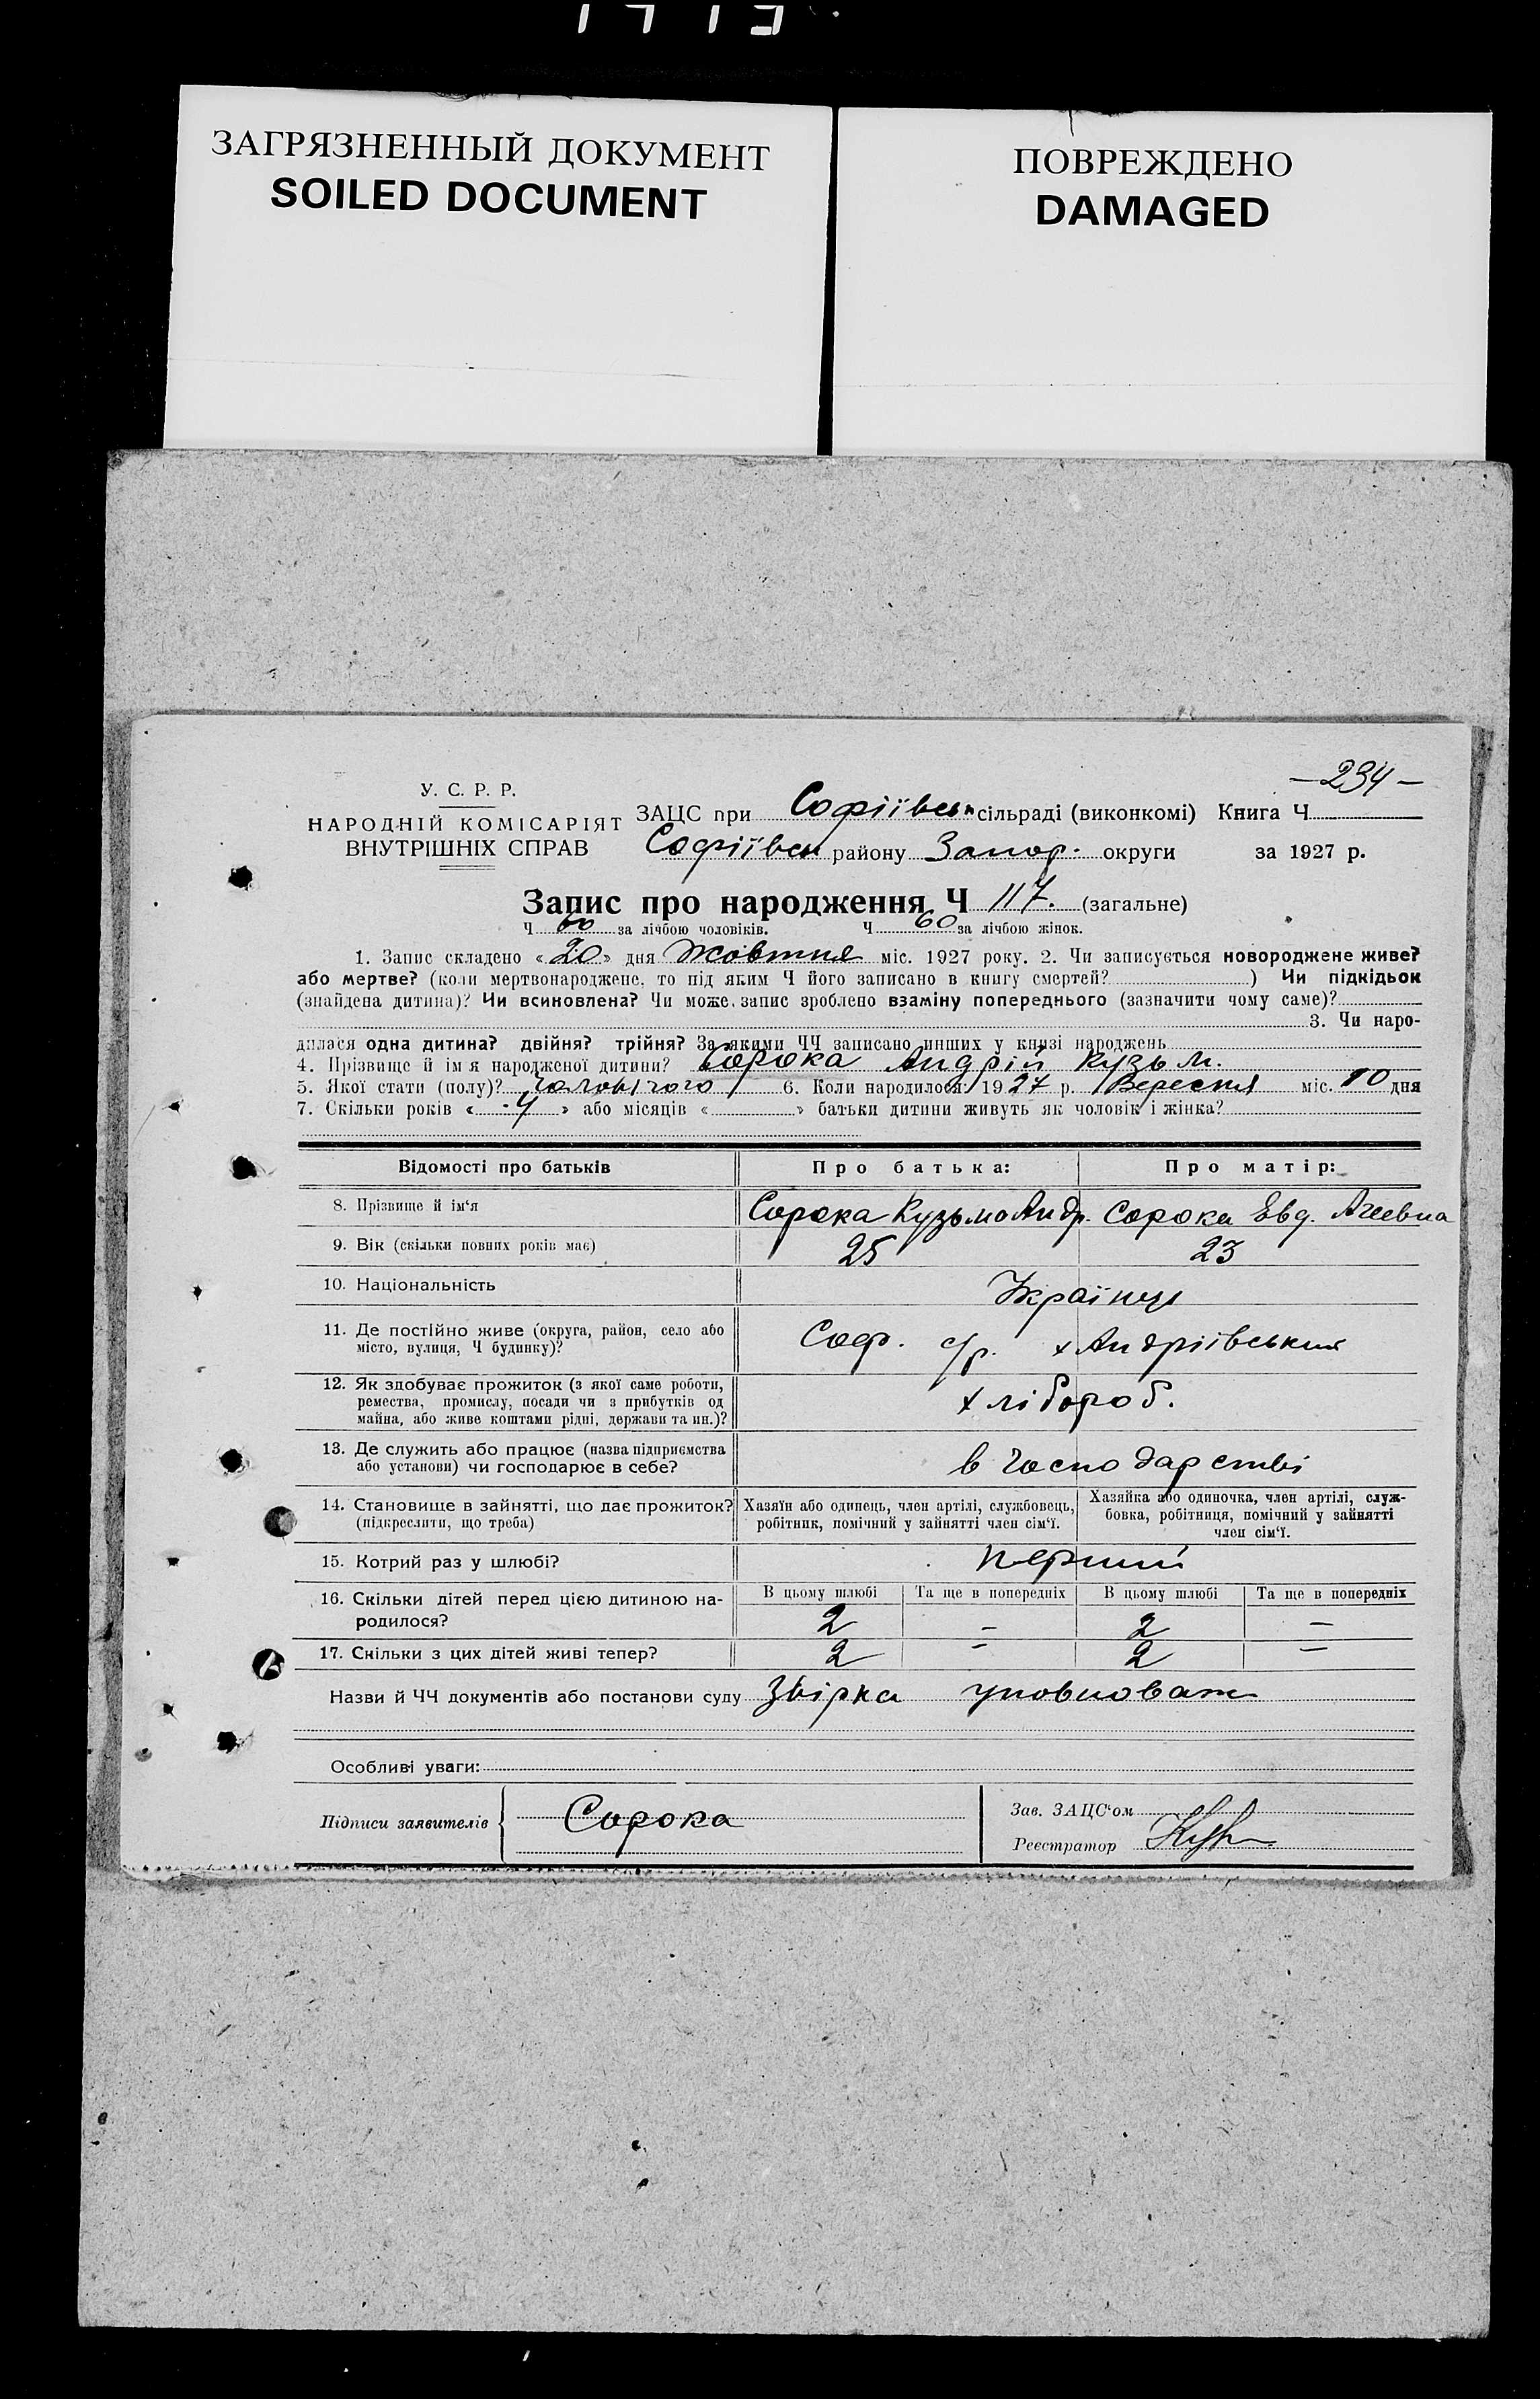 ЗАГРЯЗНЕННЫЙ ДОКУМЕНТ
SOILED DOCUMENT
ПОВРЕЖДЕНО
DAMAGED
— 234 —
У. С. Р. Р.
НАРОДНІЙ КОМІСАРІЯТ
ВНУТРІШНІХ СПРАВ
ЗАЦС при Софіївськ сільраді (виконкомі) Книга Ч
Софіївськ району Запор. округи за 1927 р.
Запис про народження Ч 117. (загальне)
Ч 60 за лічбою чоловіків. Ч 60 за лічбою жінок.
1. Запис складено «20» дня Жовтня міс. 1927 року. 2. Чи записується новороджене живе?
або мертве? (коли мертвонароджене, то під яким Ч його записано в книгу смертей?) Чи підкідьок
(знайдена дитина)? Чи всиновлена? Чи може, запис зроблено взаміну попереднього (зазначити чому саме)?
3. Чи наро-
дилася одна дитина? двійня? трійня? За якими ЧЧ записано инших у книзі народжень
4. Прізвище й ім я народженої дитини? Сорока Андрій Кузьм.
5. Якої стати (полу)? Чоловічого 6. Коли народилося? 1927 р. Вересня міс. 10 дня
7. Скільки років «4» або місяців « » батьки дитини живуть як чоловік і жінка?
Відомості про батьків Про батька: Про матір:
8. Прізвище й ім'я Сорока Кузьмо Андр. Сорока Евд. Агеевна
9. Вік (скільки повних років має) 25 23
10. Національність Українці
11. Де постійно живе (округа, район, село або
місто, вулиця, Ч будинку)? Соф. с/р. х Андріївський
12. Як здобуває прожиток (з якої саме роботи,
ремества, промислу, посади чи з прибутків од
майна, або живе коштами рідні, держави та ин.)? хлібороб.
13. Де служить або працює (назва підприємства
або установи) чи господарює в себе? в господарстві
14. Становище в зайнятті, що дає прожиток?
(підкреслити, що треба)
Хазяїн або одинець, член артілі, службовець,
робітник, помічний у зайнятті член сім'ї.
Хазяйка або одиночка, член артілі, служ-
бовка, робітниця, помічний у зайнятті
член сім'ї.
15. Котрий раз у шлюбі? перший
В цьому шлюбі Та ще в попередніх В цьому шлюбі Та ще в попередніх
16. Скільки дітей перед цією дитиною на-
родилося? 2 – 2 –
17. Скільки з цих дітей живі тепер? 2 – 2 –
Назви й ЧЧ документів або постанови суду Збірка уповноваж
Особливі уваги:
Підписи заявителів Сорока
Зав. ЗАЦС'ом
Реєстратор